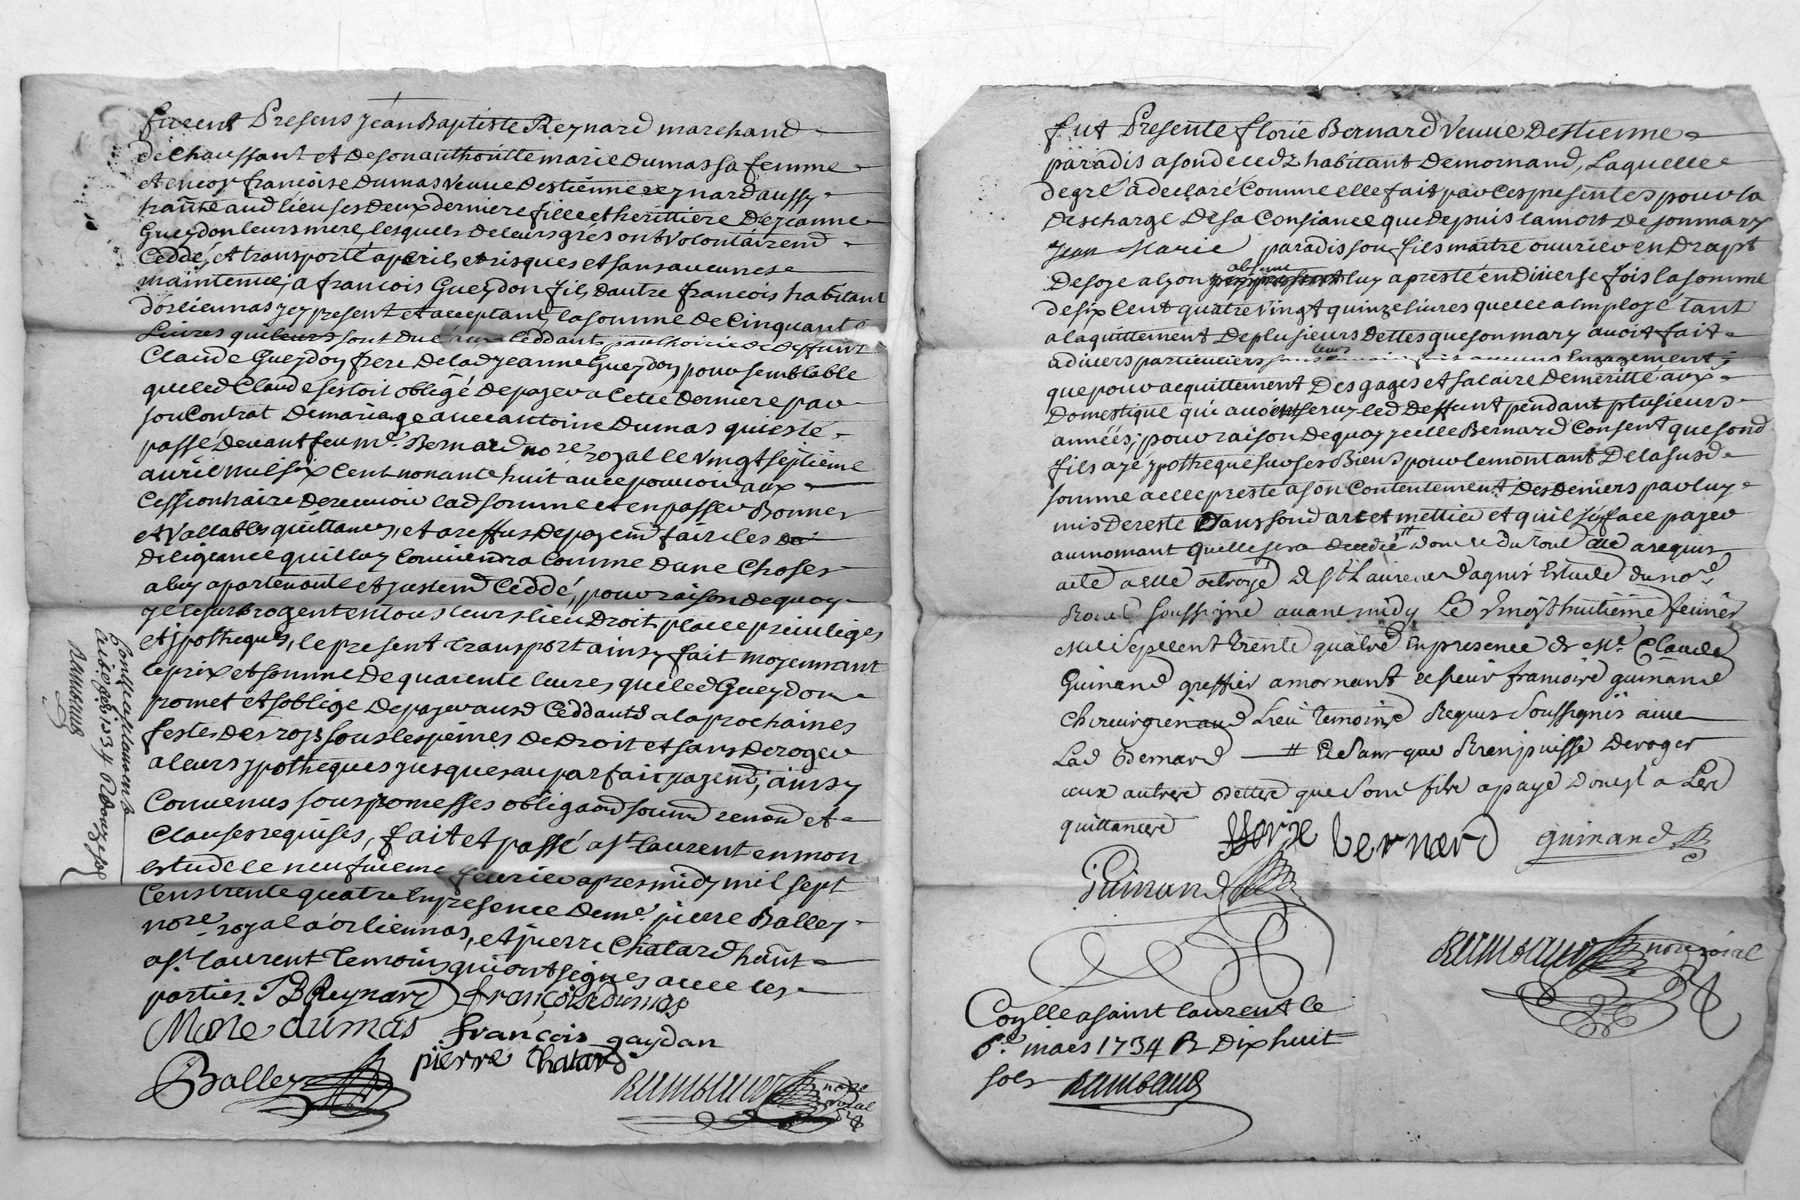 furent Presens Jean Baptiste Reynard marchand
de Chaussant et de son authoritté marie dumas sa femme
et encor françoise dumas veuve destienne reynard aussy
hãnte aud lieu ses deux derniere fille et herittiere de jeanne
Gueydon leurs mere, lesquels de leurs grés ont volontairemt
Ceddé, et transporté a perils et risques et sans aucunes
maintenue, a francois Gueydon fils dautre francois habitant
dorliennas jcy present et acceptant, la somme de Cinquante
Livres qui leurs sont du Ceddants par hoirie de deffunt
Claude Gueydon frere de lad jeanne Gueydon, pour semblable
que led Claude sestoit obligé de payer a Cette derniere par
son Contrat de mariage avec antoine Dumas qui esté
passé devant feu me. Bernard nore royal le vingt septieme
avril mil six Cent nonante huit avec pouvoir aux
Cessionnaire de recevoir lad somme et en passer Bonnes
et Vallables quittances, et a reffus de payemt faire les
diligeance quil luy Conviendra Comme dune Choses
a luy apartenante et justemt Ceddé, pour raison de quoy
jl le subrogent en tous leurs lieu Droit, place privileges
et jpotheques, le present transport ainsy fait moyennant
le prix et somme de quarente livres, que led Gueydon
promet et soblige de payer ausd Ceddants a la prochaines
festes des roys sous les peines de Droit et sans deroger
a leurs ypotheques jusques au parfait payemt, ainsy
Convenus sous promesses obligaons soumõ renonõ et
Clauses requises, fait et passé a st. laurent en mon
estude le neufvieme fevrier apres midy mil sept
Cens trente quatre En presence de me. pierre Balley
nore. royal a orliennas, et pierre Chatard hãnt
a st. laurent temoins qui ont signes avec les
parties. J B Reynard françoise dumas
Marie dumas françois gaydan
Balley pierre Chatard
Rambaud nore royal
Contle a st laurent le
1734
Rambaud
fut Presente florie Bernard veuve destienne
paradis a son decedz habitant de mornand, Laquelle
de gré a declaré Comme elle fait par Ces presentes pour la
descharge de sa Consiance que depuis la mort de son mary
Jean Marie paradis son fils maitre ouvrier en drapt
de soye a lyon absent luy a presté en diverse fois la somme
de six Cent quatre vingt quinze livres quelle a Employé tant
a laquittement de plusieurs dettes que son mary avoit fait
a divers particuliers Engagement,
que pour acquittement des gages et salaire de meritté aux
domestique qui avoient servy led deffunt pendant plusieurs
années, pour raison de quoy jcelle Bernard Consent que sond
fils aye ypotheque sur ses Biens pour le montant de la susd
somme a elle presté a son Contentement des deniers par luy
mis de reste dans sond art et mettier et quil sy face payer
au momant quelle sera decedée # dont et du tout elle a requis
acte a elle octroyé a st Laurent dagnis Estude du nore
Roial soussigné avant midy Le vingt huitieme fevrier
mil sept cent trente quatre En presence de Me. Claude
Guinand greffier a mornant et sieur françois guinand
chirurgien aud Lieu temoins Requis soussignés avec
Lad Bernard — # et sans que Rien puisse deroger
aux autres dettes que son fils a payé dont jl a Les
quittances
florie bernard guinand
Guinand
Rambaud nore roial
Conlle a saint laurent le
6e. mars 1734 R Dix huit
sols Rambaud